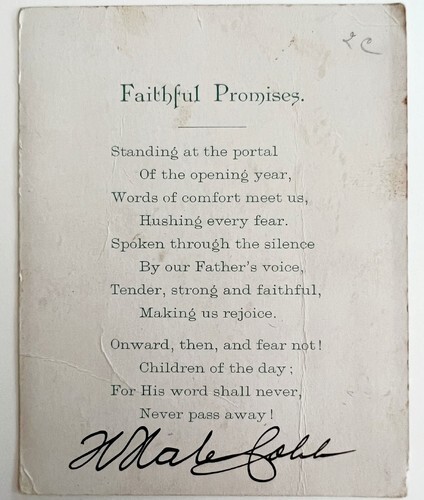 2 C
Faithful Promises.
Standing at the portal
Of the opening year,
Words of comfort meet us,
Hushing every fear.
Spoken through the silence
By our Father's voice,
Tender, strong and faithful,
Making us rejoice.
Onward, then, and fear not!
Children of the day;
For His word shall never,
Never pass away!